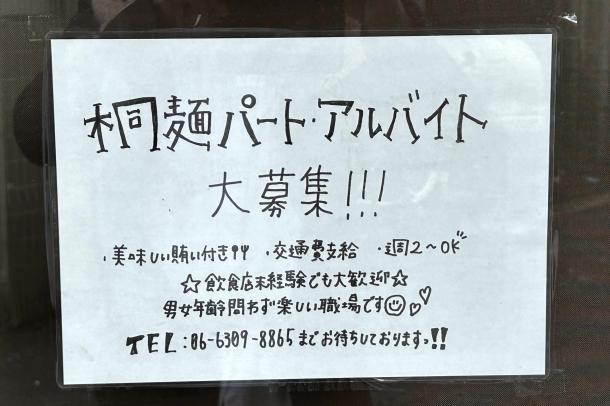 桐麺パート・アルバイト
大募集!!!
・美味しい賄い付き!! ・交通費支給 ・週2〜OK"
☆飲食店未経験でも大歓迎☆
男女年齢問わず楽しい職場です
TEL:06-6309-8865までお待ちしておりますっ!!